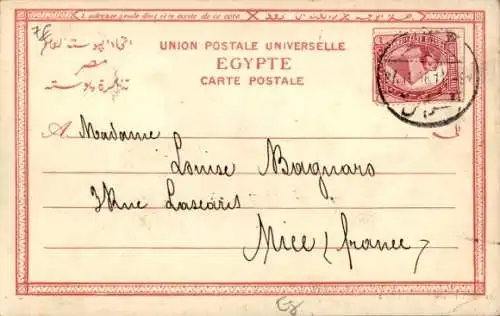 L'adresse seule doit être écrite de ce côté
UNION POSTALE UNIVERSELLE
EGYPTE
CARTE POSTALE
مصر
تذكرة بوسته
A Madame
Louise Bagnaro
3 Rue Lascaris
Nice (france)